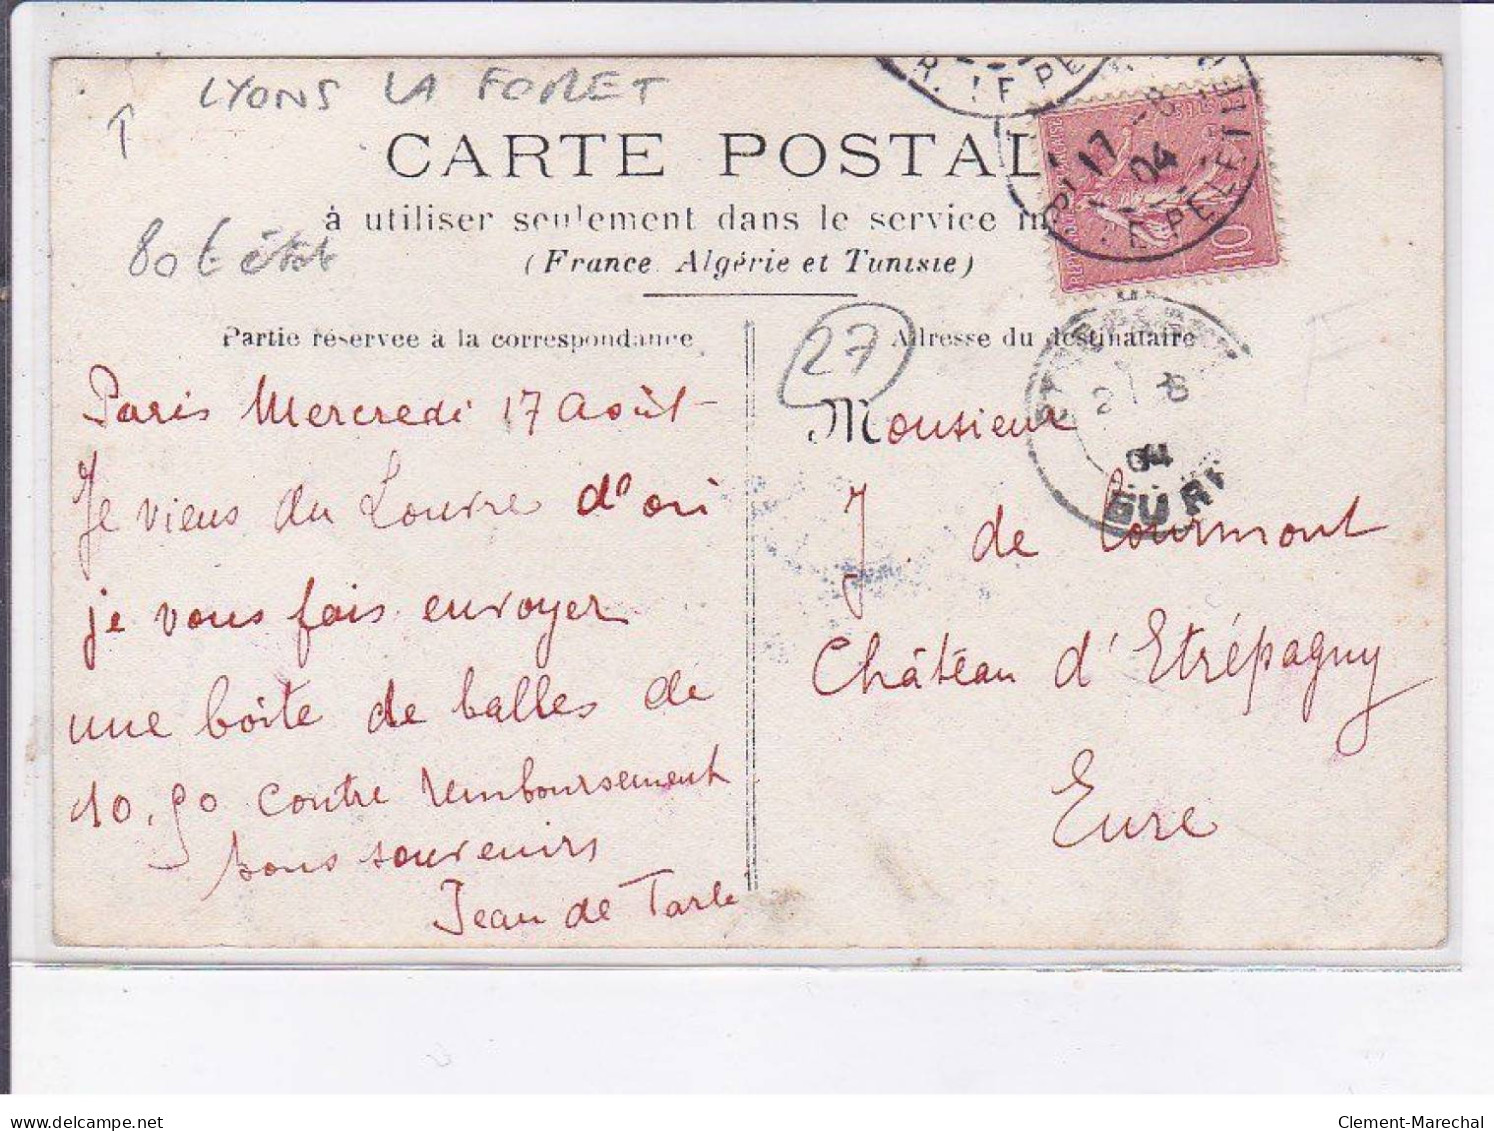 LYONS LA FORET
CARTE POSTAL
à utiliser seulement dans le service in
(France, Algérie et Tunisie)
80 € état
17 -8
04
10
Partie réservée à la correspondance
27
Adresse du destinataire
Paris Mercredi 17 Août
Je viens du Louvre d'où
je vous fais envoyer
une boîte de balles de
10.90 contre remboursement
bons souvenirs
Jean de Tarle
Monsieur
J. de Courmont
Château d'Etrépagny
Eure
04
EURE
delcampe.net
Clement-Marechal